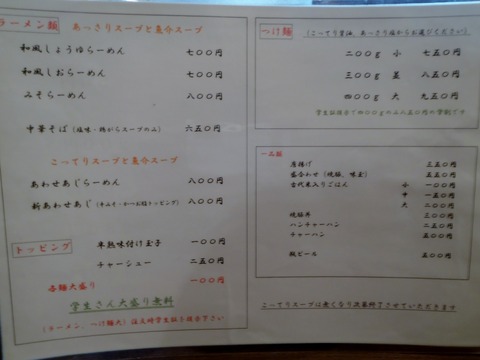 ラーメン麺
あっさりスープと魚介スープ
和風しょうゆらーめん 七〇〇円
和風しおらーめん 七〇〇円
みそらーめん 八〇〇円
中華そば(塩味・鶏がらスープのみ) 六五〇円
こってりスープと魚介スープ
あわせあじらーめん 八〇〇円
新あわせあじ 八〇〇円
トッピング
半熟味付け玉子 一〇〇円
チャーシュー 二五〇円
各麺大盛り 一〇〇円
学生さん大盛り無料
(ラーメン、つけ麺大)注文時学生証を提示下さい
つけ麺
(こってり醤油、あっさり塩からお選びください)
二〇〇g 小 七五〇円
三〇〇g 並 八五〇円
四〇〇g 大 九五〇円
学生証提示で四〇〇gのみ八五〇円の学割です
一品麺
唐揚げ 三五〇円
盛合わせ(焼豚、味玉) 五五〇円
古代米入りごはん 小 一〇〇円
中 一五〇円
大 二〇〇円
焼豚丼 三〇〇円
ハンチャーハン 二五〇円
チャーハン 五〇〇円
瓶ビール 五〇〇円
こってりスープは無くなり次第終了させていただきます